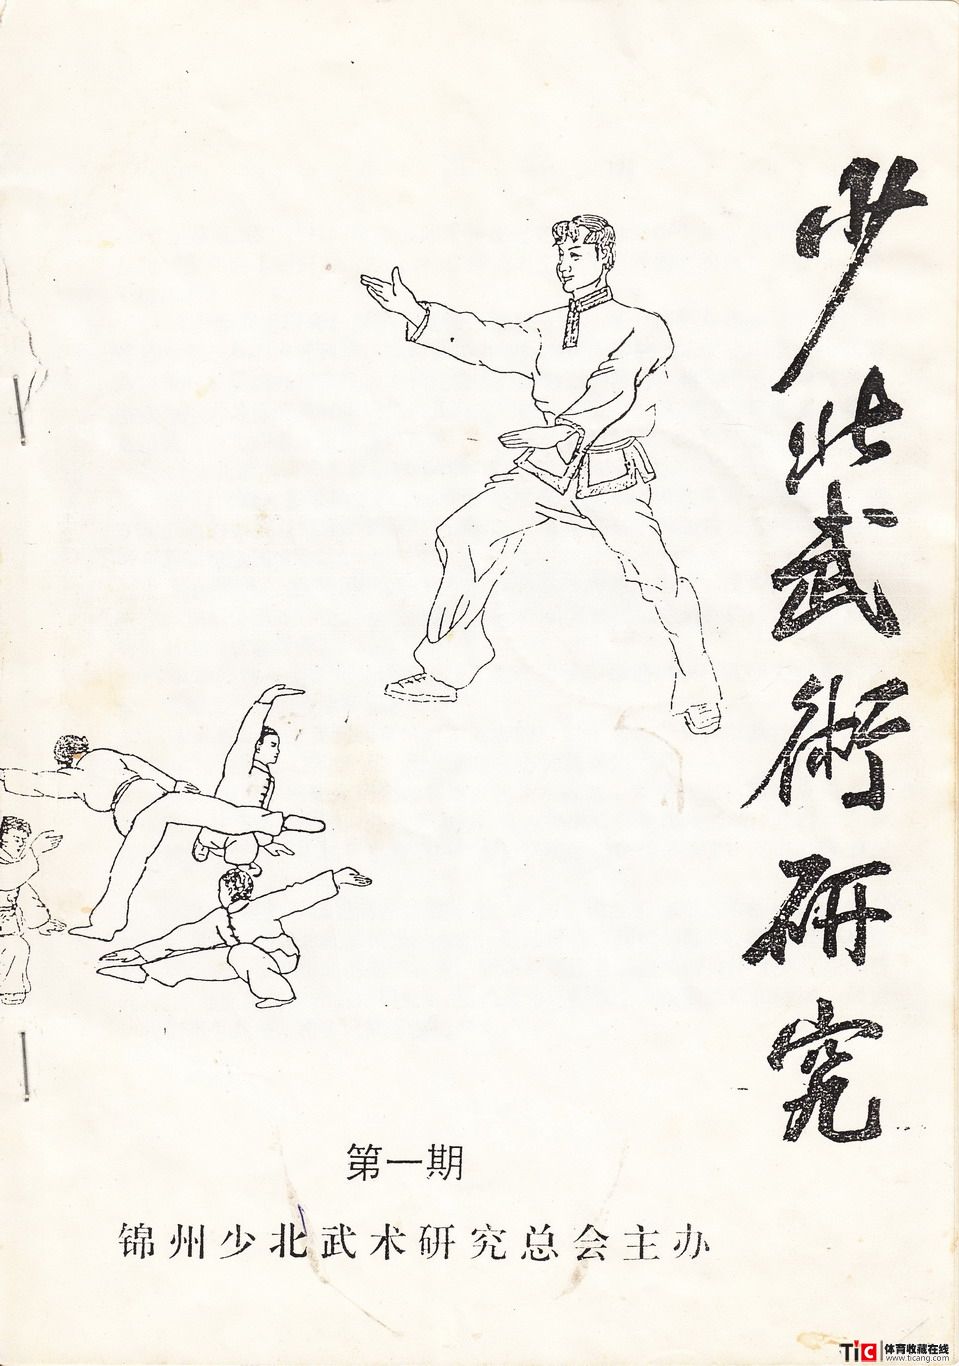 少北武術研究
第一期
锦州少北武术研究总会主办
TiC 体育收藏在线
www.ticang.com